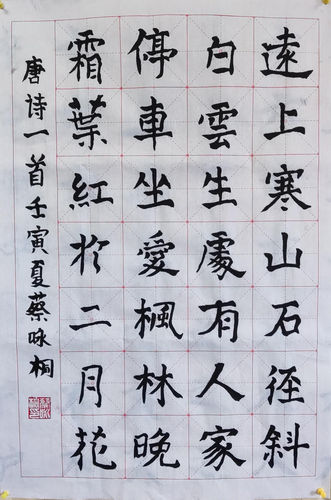 遠上寒山石徑斜
白雲生處有人家
停車坐愛楓林晚
霜葉紅於二月花
唐詩一首壬寅夏蔡咏桐